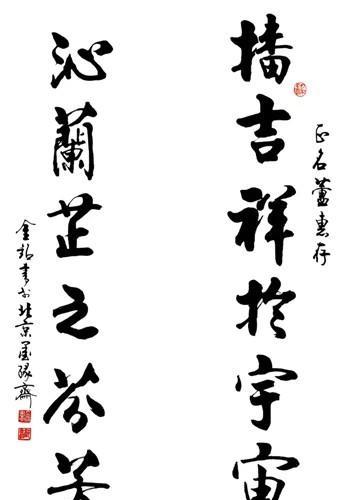 正名 惠存
播吉祥於宇宙
沁蘭芷之芬芳
金 書於北京墨緣齋